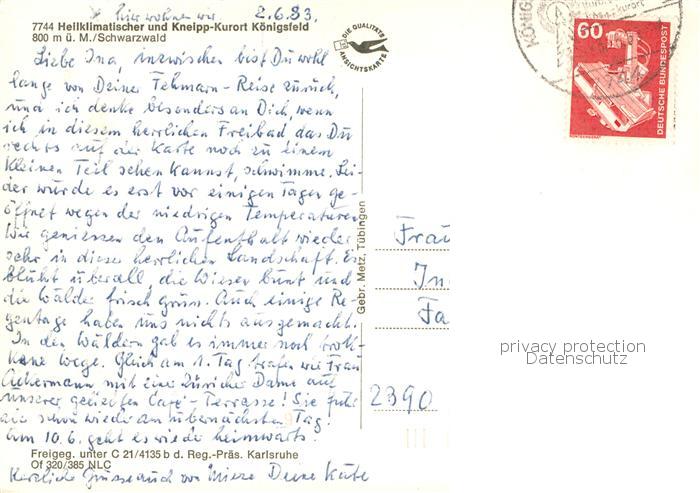 hier wohnen wir. 2.6.83.
7744 Heilklimatischer und Kneipp-Kurort Königsfeld
800 m ü. M./Schwarzwald
DIE QUALITÄTS
ANSICHTSKARTE
60
DEUTSCHE BUNDESPOST
Liebe Ina, inzwischen bist Du wohl
lange von Deiner Fehmarn-Reise zurück,
und ich denke besonders an Dich, wenn
ich in diesem herrlichen Freibad das Du
rechts auf der Karte noch zu einem
kleinen Teil sehen kannst, schwimme. Lei-
der wurde es erst vor einigen Tagen ge-
öffnet wegen der niedrigen Temperaturen
Wir geniessen den Aufenthalt wieder
sehr in dieser herrlichen Landschaft. Es
blüht überall, die Wiesen bunt und
die Wälder frisch grün. Auch einige Re-
gentage haben uns nichts ausgemacht.
In den Wäldern gab es immer noch trok-
kene Wege. Gleich am 1. Tag trafen wir Frau
Ackermann mit einer Züricher Dame auf
unserer geliebten Café-Terrasse! Sie
schon wieder am übernächsten Tag!
Am 10.6. geht es wieder heimwärts.
Freigeg. unter C 21/4135 b d. Reg.-Präs. Karlsruhe
Of 320/385 NLC
Herzliche Grüsse auch von Deine Käte
Gebr. Metz, Tübingen
Frau
In
Fa
2390
privacy protection
Datenschutz